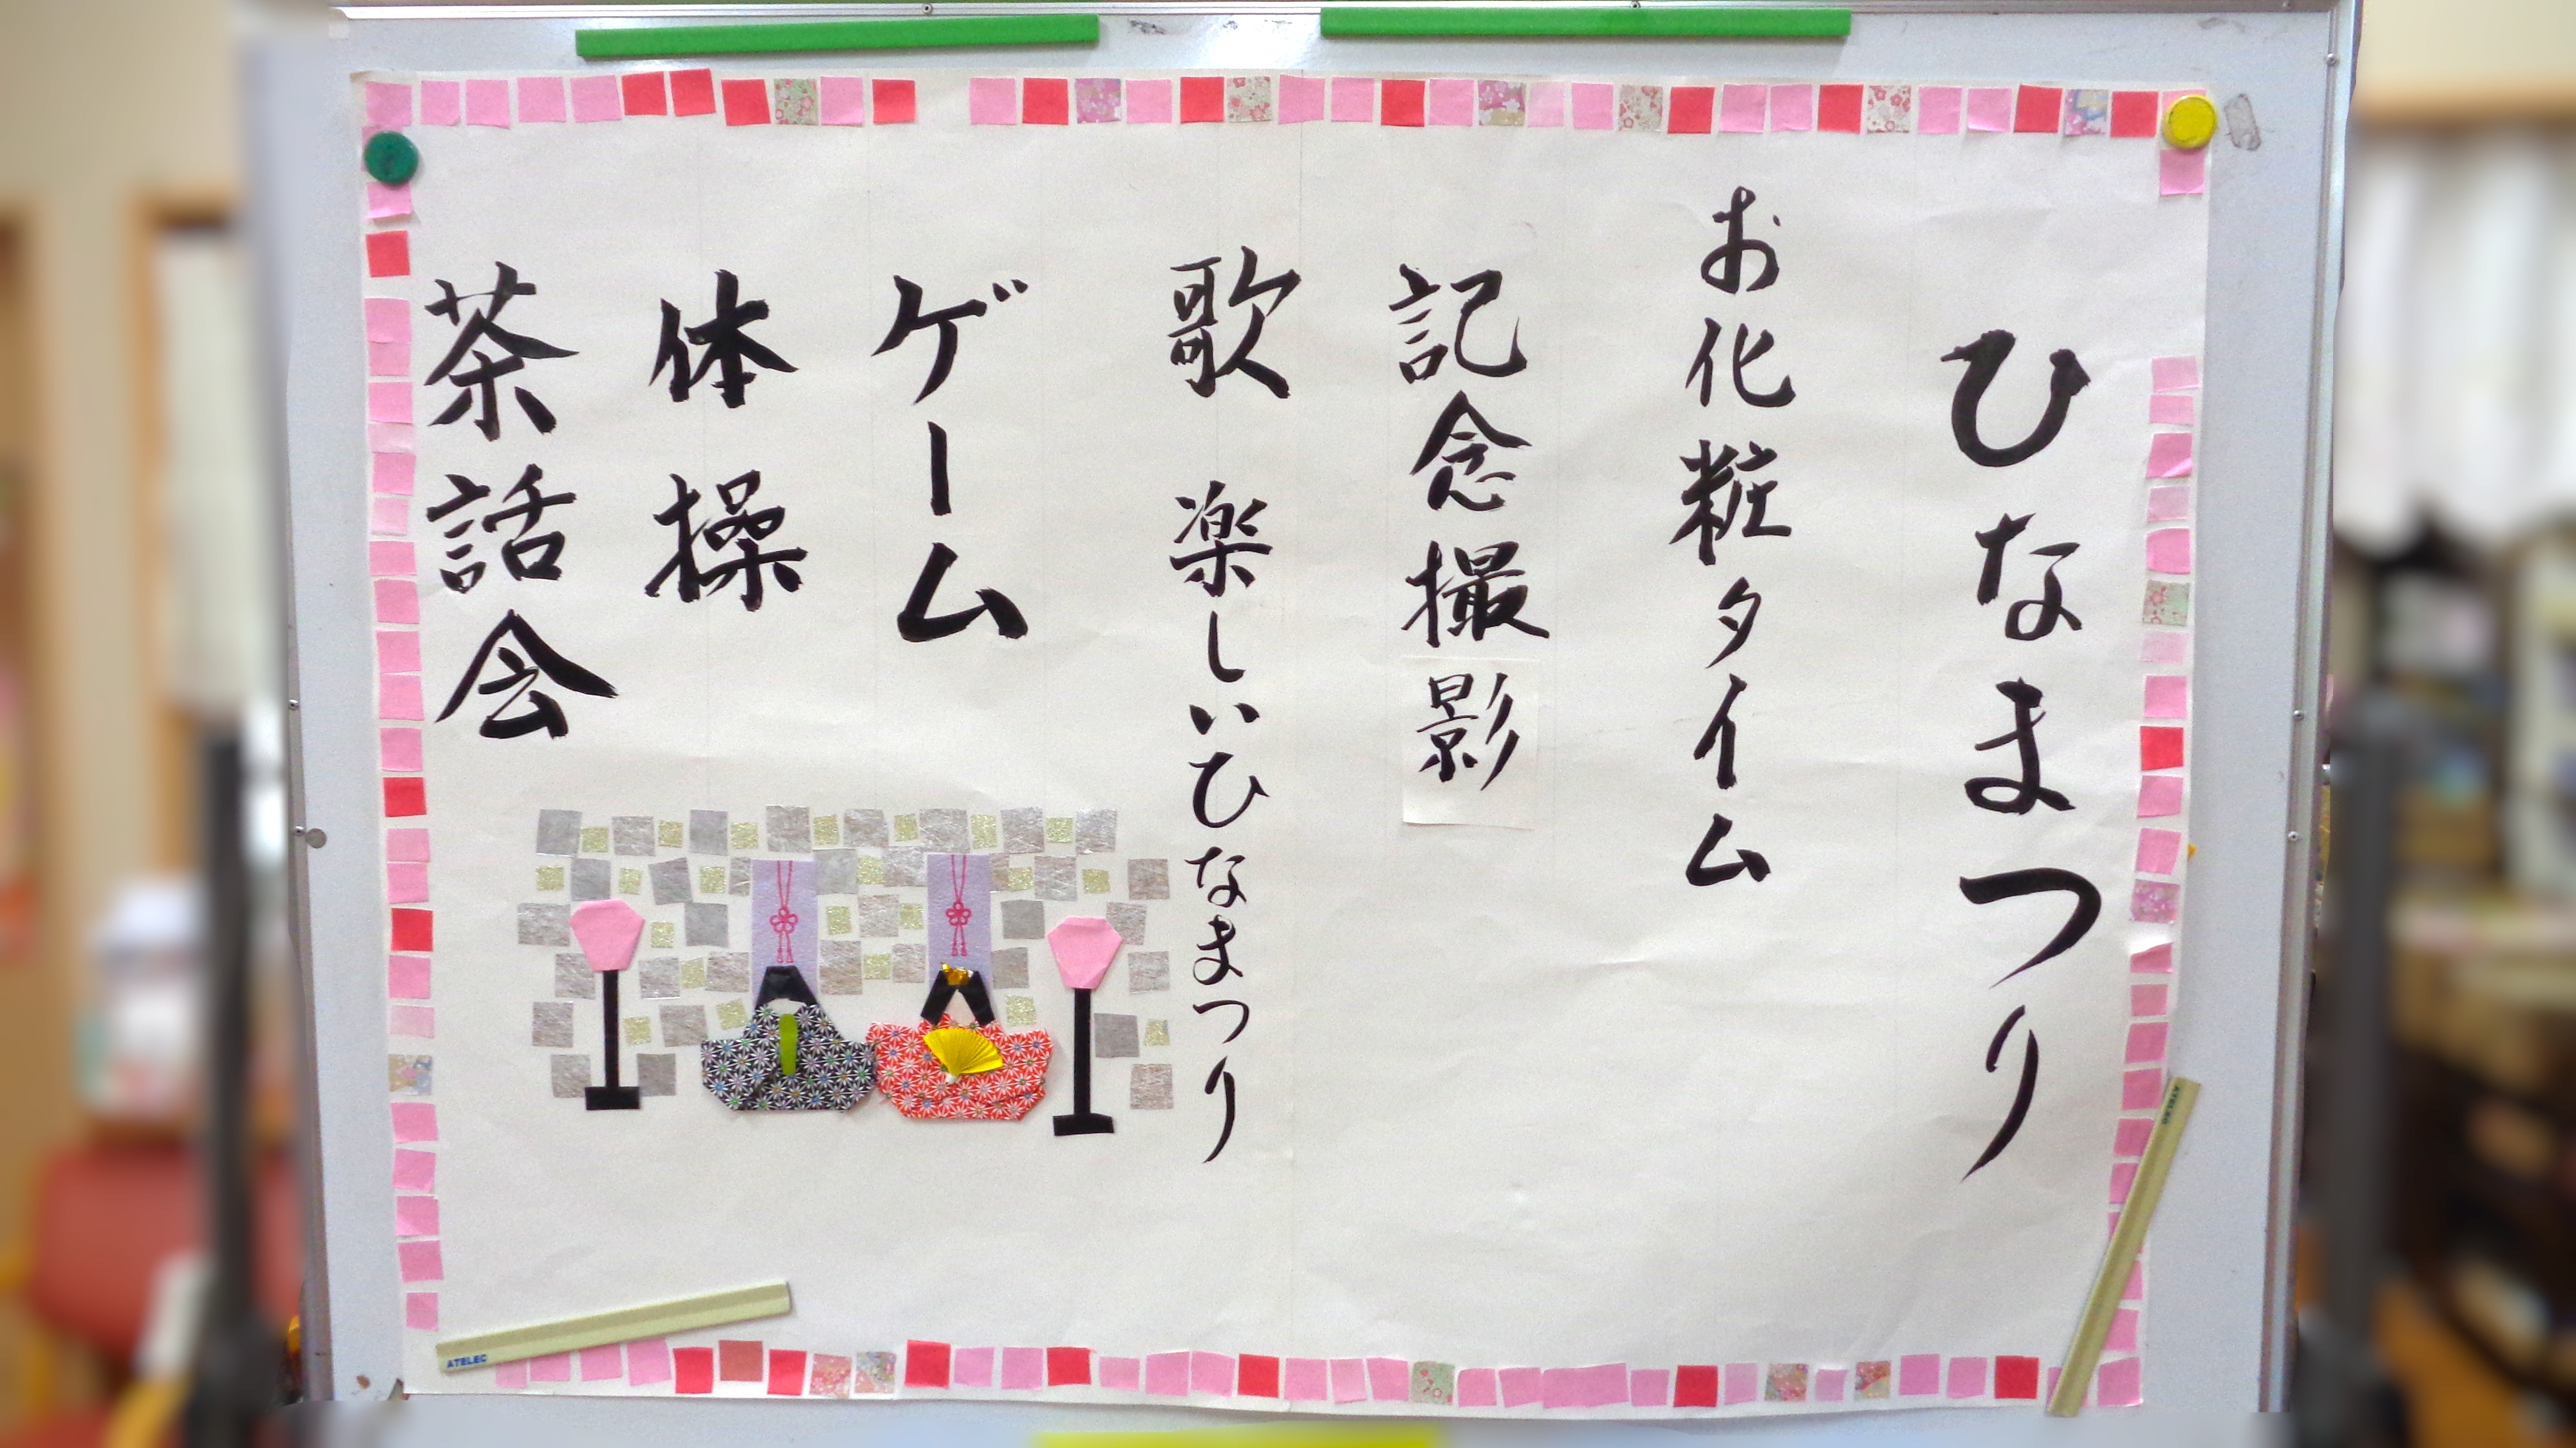 ひなまつり
お化粧タイム
記念撮影
歌 楽しいひなまつり
ゲーム
体操
茶話会
ATELEC
ATELEC